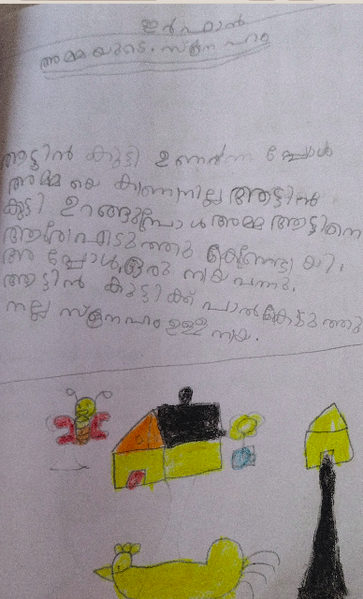 ഇർഫാൻ
അമ്മയുടെ. സ്നേഹം
ആട്ടിൻ കുട്ടി ഉണർന്ന പ്പോൾ
അമ്മ യെ കാണാനില്ല ആട്ടിൻ
കുട്ടി ഉറങ്ങുമ്പോൾ അമ്മ ആട്ടിനെ
ആരോ പിടുത്തു കൊണ്ടോ യി.
അ പ്പോൾ ഒരു നായ വന്നു.
ആട്ടിൻ കുട്ടിക്ക് പാൽ കൊടുത്തു
നല്ല സ്നേഹം ഉള്ള നായ.